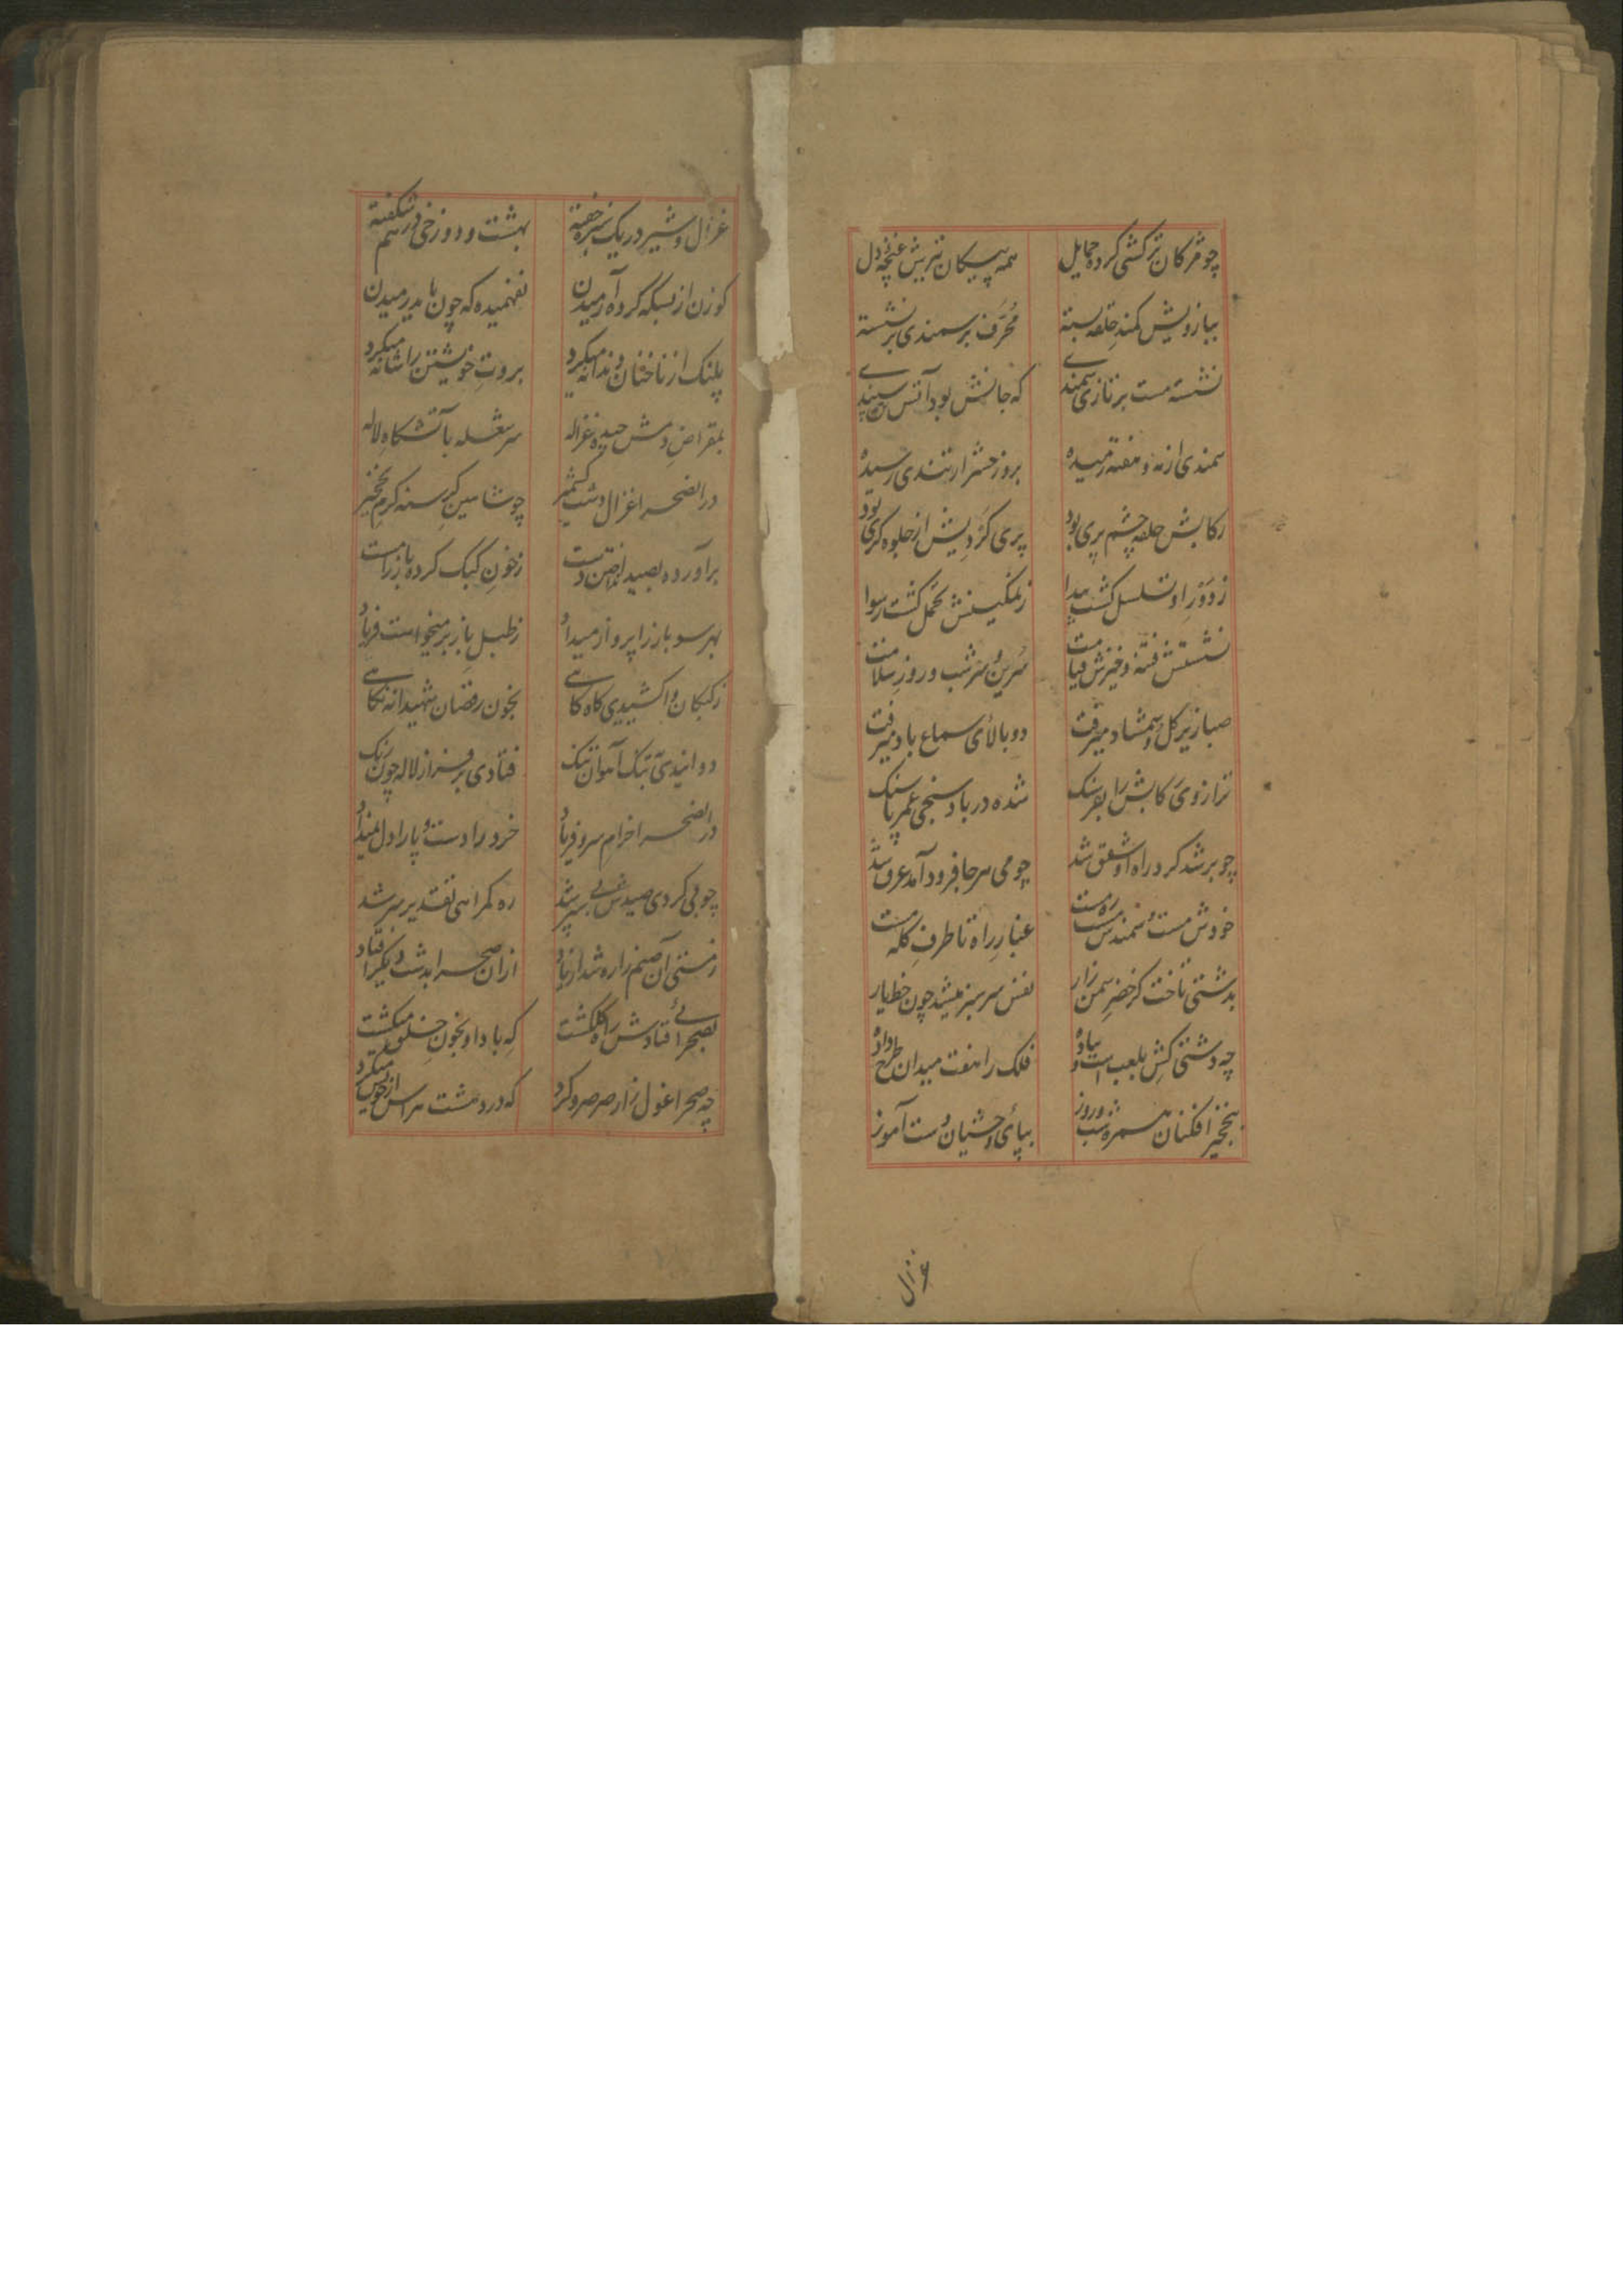 چو مژکان ترکشی کرده حمایل همه پیکان تیرش غنچهٔ دل
ببازویش کمند حلقه بسته مُحَرَّف بر سمندی بر نشسته
نشسته مست بر تازی سمندے که جانش بود آتش سپندے
سمندی از مه و هفته رمیده بروز حشر از تندی رسیده
رکابش حلقهٔ چشم پری بود پری کَردیش از جلوه کری بود
ز دَوْرِ او تسلسل کشت پیدا ز تمکینش تحمل کشت رسوا
نشستش فتنه و خیزش قیامت سُرین و سر شب و روز سلامت
صبا زیر کل و شمشاد میرفت دو بالای سماع باد میرفت
ترازوی رکابش را بفرسنک شده در باد سنجی عمر پاسنک
چو بر شد کرد راه او شفق شد چو می هر جا فرود آمد عرق شد
خودش مست و سمندش مست و ره مست غبارِ راه تا طرفِ کله مست
بدشتی تاخت کز خضرِ سمن زار نفس سرسبز میشد چون خط یار
چه دشتی کش بلعب استاده فلک را هفت میدان طرح داده
بنخچیر افکنان همره شب و روز بپای وحشیان دست آموز
غزال
غزال و شیر در یک سبزه خفته بهشت و دوزخی در هم شکفته
کوزن از بسکه کرده آرمیدن نفهمیده که چون باید رمیدن
پلنک از ناخنان دندانه میکرد بروتِ خویشتن را شانه میکرد
بمقراضِ دمش چیده غزاله سر شعله بآتشکاهِ لاله
در انصحرا غزال دشت کشمیر چو شاهین کرسنه کرم نخچیر
برآورده بصید انداختن دست ز خونِ کبک کرده باز را مست
بهر سو باز را پرواز میداد ز طبل باز بر میخواست فریاد
ز کبکان وا کشیدی کاه کاهے بخون رقصان شهیدانه نکاهے
دوانیدی بتک آهوان تنک فتادی بر فراز لاله چون رنک
در انصحرا خرام سرو فریاد خرد را دست و پا را دل نمیداد
چو پی کردی صیدش پی سپر شد ره کمراهی تقدیر سر شد
ز مستی آن صنم را ره شد از یاد از ان صحرا بدشت دیکر افتاد
بصحرائے فتادش راه کلکشت که باد او بخون خلق میکشت
چه صحرا غول زار صرصر و کرد که در دهشت هراس از خویش میکرد